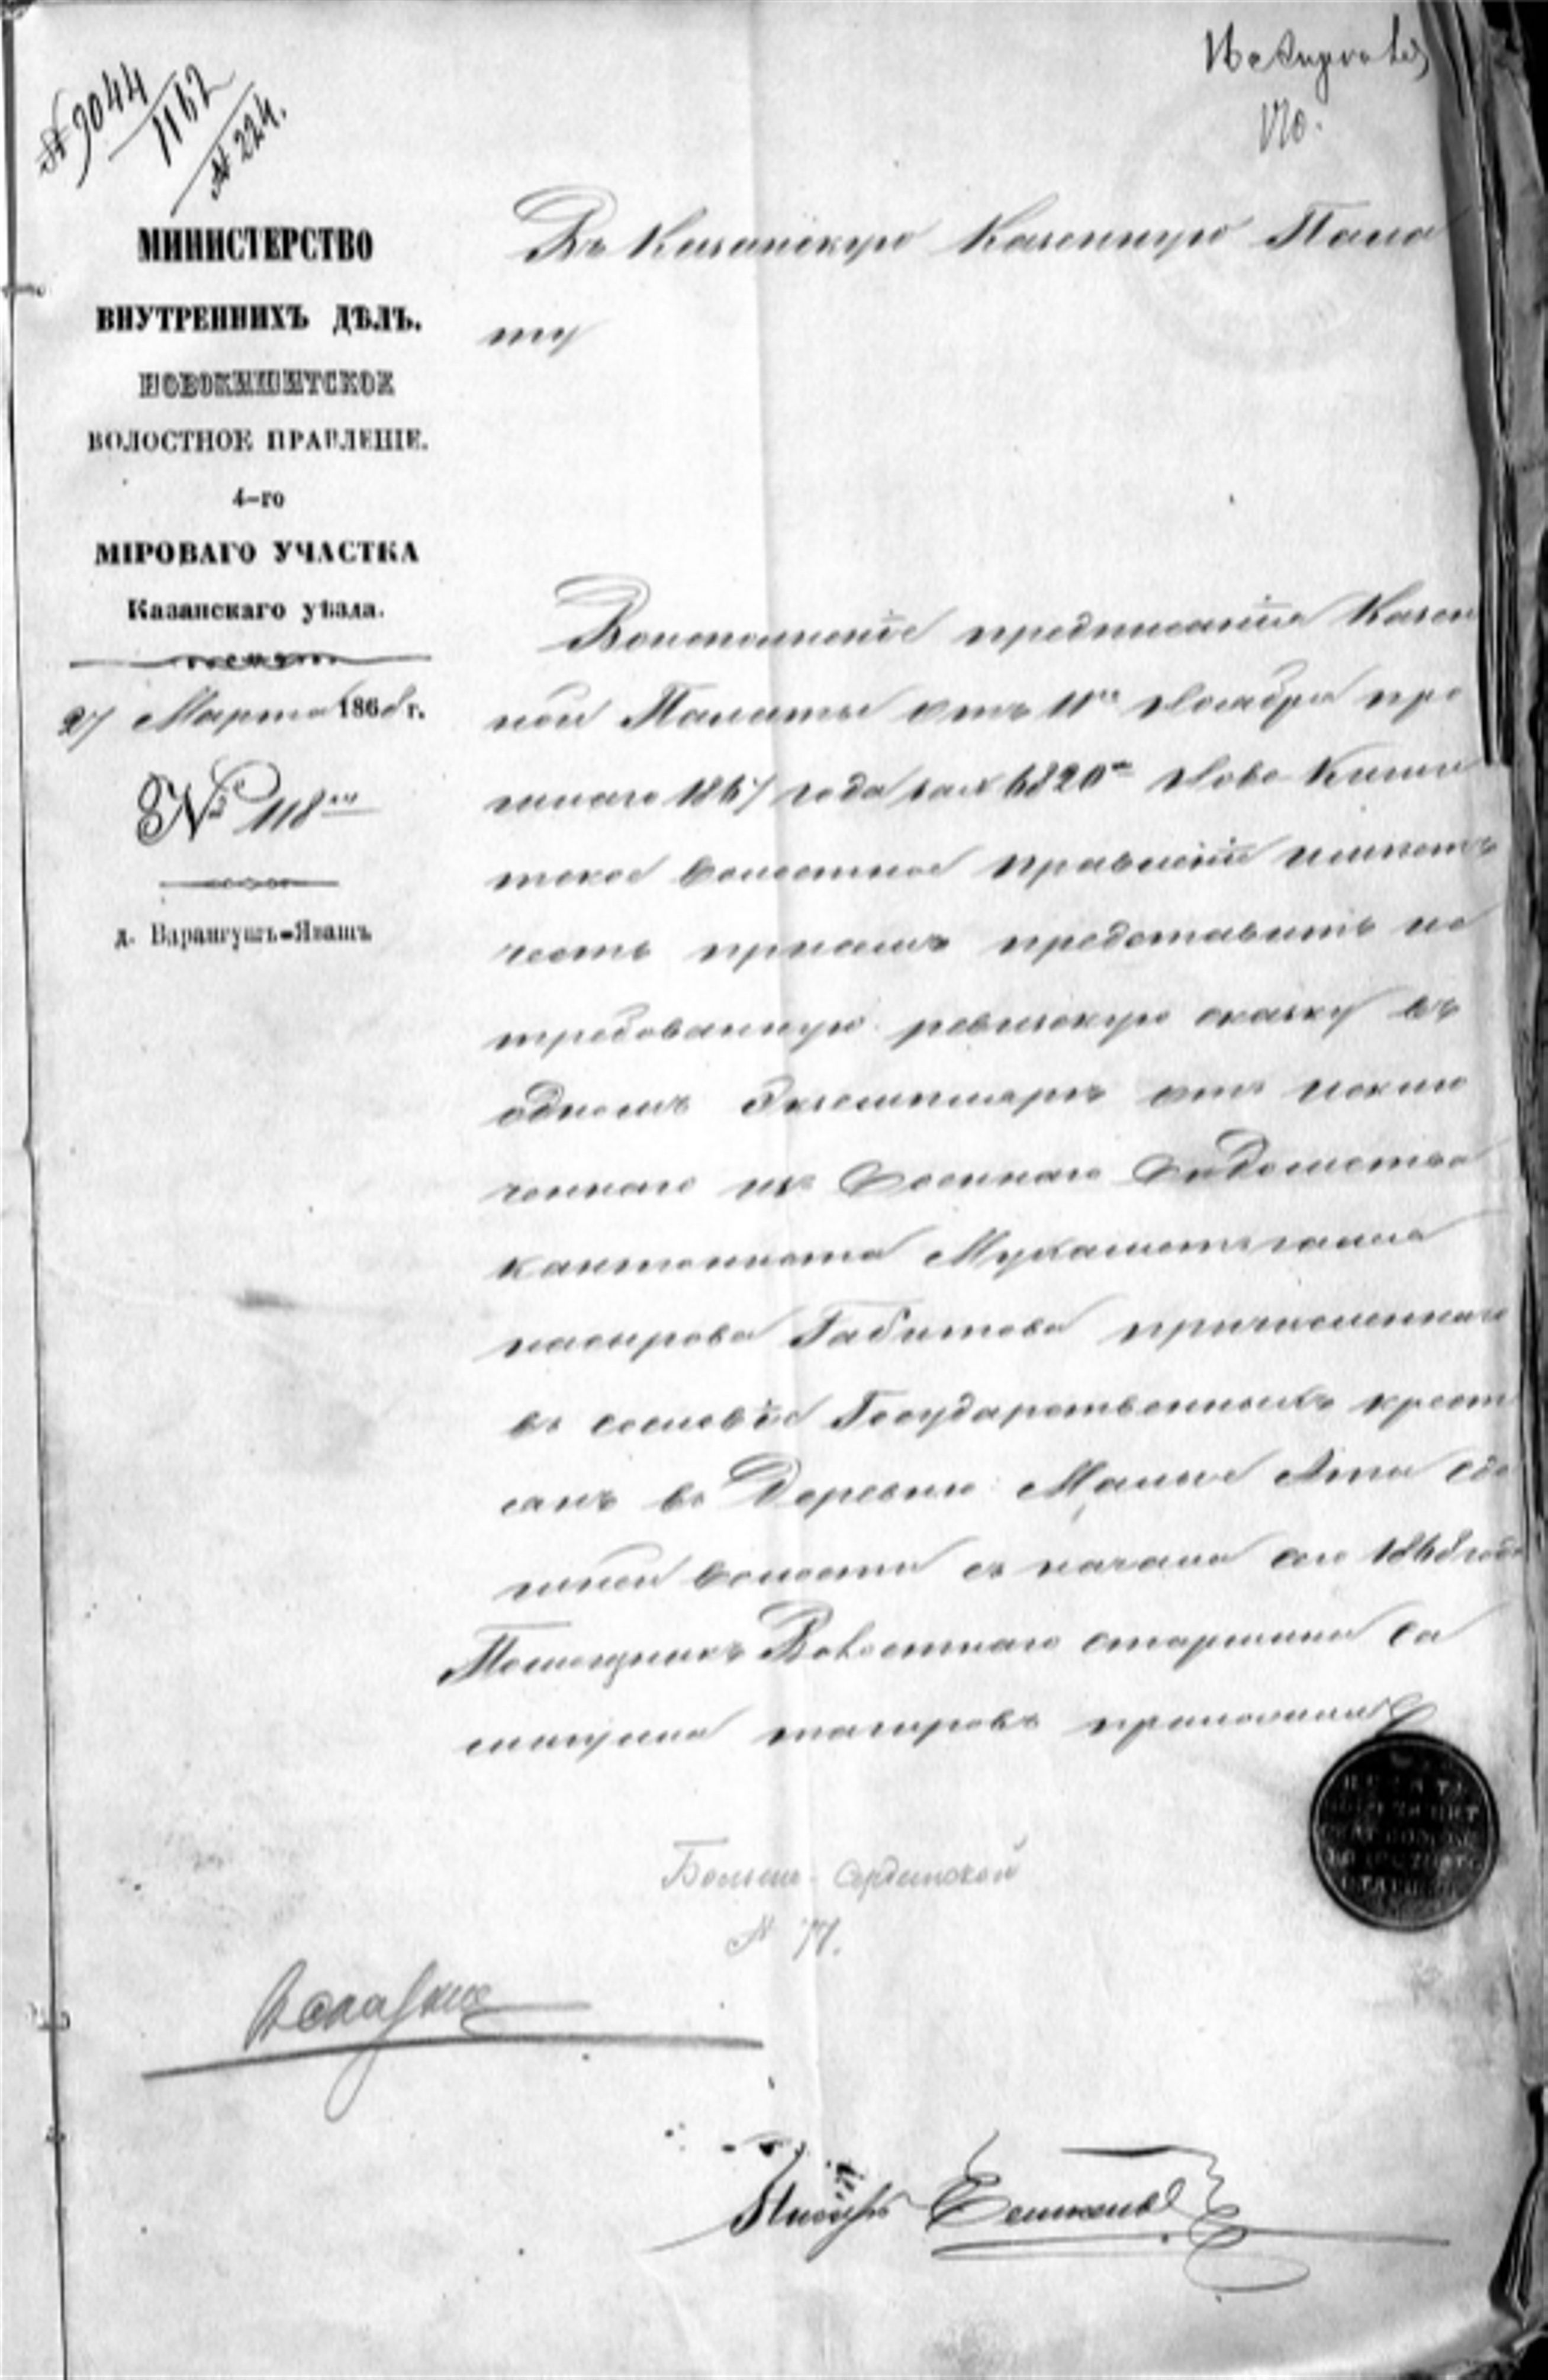 № 9044
1162
№ 224.
16 Апреля
МИНИСТЕРСТВО
ВНУТРЕННИХЪ ДѢЛЪ.
НОВОКИШИТСКОЕ
ВОЛОСТНОЕ ПРАВЛЕНІЕ.
4-го
МІРОВАГО УЧАСТКА
Казанскаго уѣзда.
27 Марта 1868 г.
№ 118
д. Варангушъ-Явашъ
Въ Казанскую Казенную Пала
ту
Воисполненіе предписанія Казен
ной Палаты отъ 11го Ноября про
шлаго 1867 года за № 6820м Ново Киши
тское волостное правленіе имѣетъ
честь присемъ представить по
требованную ревизскую сказку въ
одномъ Экземплярѣ отъ исклю
ченнаго из военнаго ведомства
кантониста Мухаметзяна
насырова Габитова причисленнаго
въ сословіе Государственныхъ крест
янъ въ Деревню Малые Аты сво
шной волости съ начала сего 1868 года
Помощникъ Волостнаго старшины Са
тагировъ приложилъ
Больше-Сердинской
№ 77.
Писарь